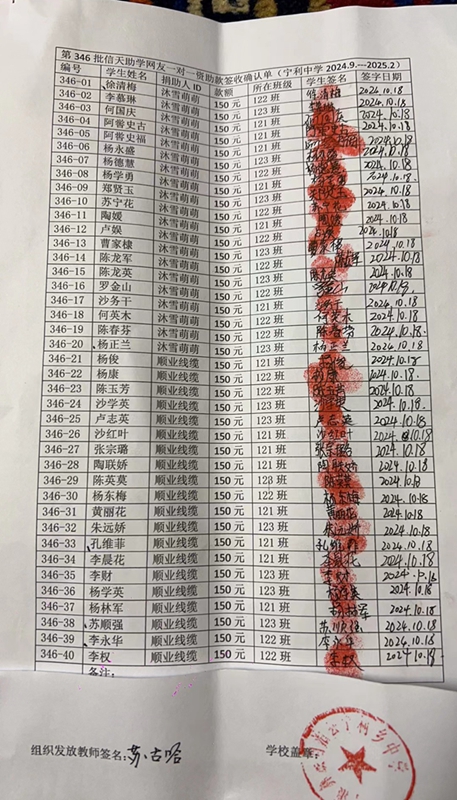 第 346 批信天助学网友一对一资助款签收确认单（宁利中学 2024.9.---2025.2）
编号 学生姓名 捐助人 ID 款额 所在班级 学生签名 签字日期
346-01 徐清梅 沐雪萌萌 150 元 122 班 徐清梅 2024.10.18
346-02 李慕琳 沐雪萌萌 150 元 122 班 2024.10.18
346-03 何国庆 沐雪萌萌 150 元 121 班 2024.10.18
346-04 阿喾史古 沐雪萌萌 150 元 121 班 2024.10.18
346-05 阿喾史福 沐雪萌萌 150 元 121 班 2024.10.18
346-06 杨永盛 沐雪萌萌 150 元 122 班 2024.10.18
346-07 杨德慧 沐雪萌萌 150 元 121 班 2024.10.18
346-08 杨学勇 沐雪萌萌 150 元 123 班 2024.10.18
346-09 郑贤玉 沐雪萌萌 150 元 121 班 2024.10.18
346-10 苏宁花 沐雪萌萌 150 元 123 班 2024.10.18
346-11 陶嫒 沐雪萌萌 150 元 122 班 2024.10.18
346-12 卢娱 沐雪萌萌 150 元 121 班 2024.10.18
346-13 曹家棣 沐雪萌萌 150 元 123 班 2024.10.18
346-14 陈龙军 沐雪萌萌 150 元 122 班 2024.10.18
346-15 陈龙英 沐雪萌萌 150 元 123 班 2024.10.18
346-16 罗金山 沐雪萌萌 150 元 122 班 2024.10.18
346-17 沙务干 沐雪萌萌 150 元 121 班 2024.10.18
346-18 何英木 沐雪萌萌 150 元 123 班 何英木 2024.10.18
346-19 陈春芬 沐雪萌萌 150 元 122 班 陈春芬 2024.10.18.
346-20 杨正兰 沐雪萌萌 150 元 123 班 杨正兰 2024.10.18
346-21 杨俊 顺业线缆 150 元 121 班 2024.10.18
346-22 杨康 顺业线缆 150 元 122 班 2024.10.18
346-23 陈玉芳 顺业线缆 150 元 122 班 2024.10.18
346-24 沙学英 顺业线缆 150 元 123 班 2024.10.18
346-25 卢志英 顺业线缆 150 元 123 班 卢志英 2024.10.18
346-26 沙红叶 顺业线缆 150 元 121 班 沙红叶 2024.10.18
346-27 张宗璐 顺业线缆 150 元 121 班 张宗璐 2024.10.18
346-28 陶联娇 顺业线缆 150 元 121 班 陶联娇 2024.10.18
346-29 陈英莫 顺业线缆 150 元 123 班 2024.10.18
346-30 杨东梅 顺业线缆 150 元 122 班 杨东梅 2024.10.18
346-31 黄丽花 顺业线缆 150 元 121 班 2024.10.18
346-32 朱远娇 顺业线缆 150 元 123 班 朱远娇 2024.10.18
346-33 孔维菲 顺业线缆 150 元 121 班 孔维菲 2024.10.18
346-34 李晨花 顺业线缆 150 元 121 班 2024.10.18
346-35 李财 顺业线缆 150 元 123 班 李财 2024.10.18
346-36 杨学英 顺业线缆 150 元 123 班 2024.10.18
346-37 杨林军 顺业线缆 150 元 121 班 2024.10.18
346-38 苏顺强 顺业线缆 150 元 123 班 苏顺强 2024.10.18.
346-39 李永华 顺业线缆 150 元 122 班 李永华 2024.10.18
346-40 李权 顺业线缆 150 元 122 班 2024.10.18.
备注：
组织发放教师签名： 苏古哈 学校盖章：